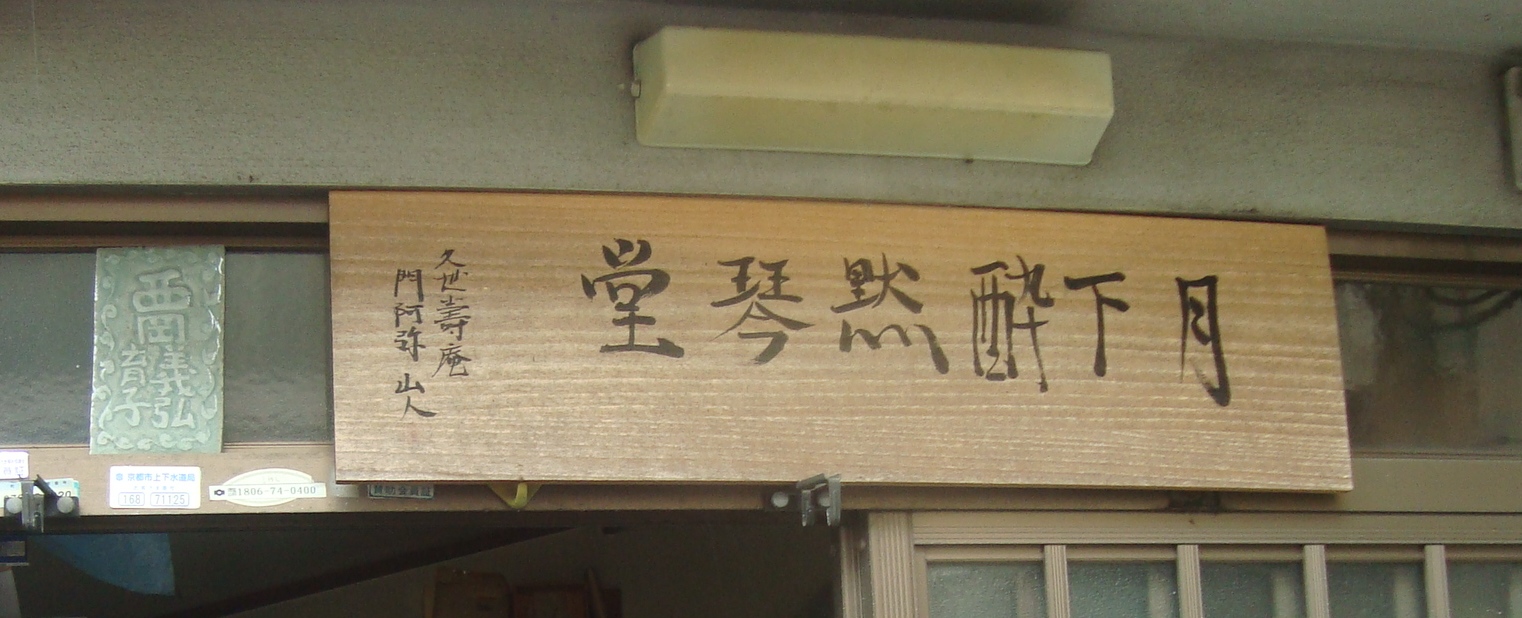 月下酔黙琴堂
久世壽庵
門阿弥山人
西岡
義弘
育子
京都市上下水道局
168 71125
1806-74-0400